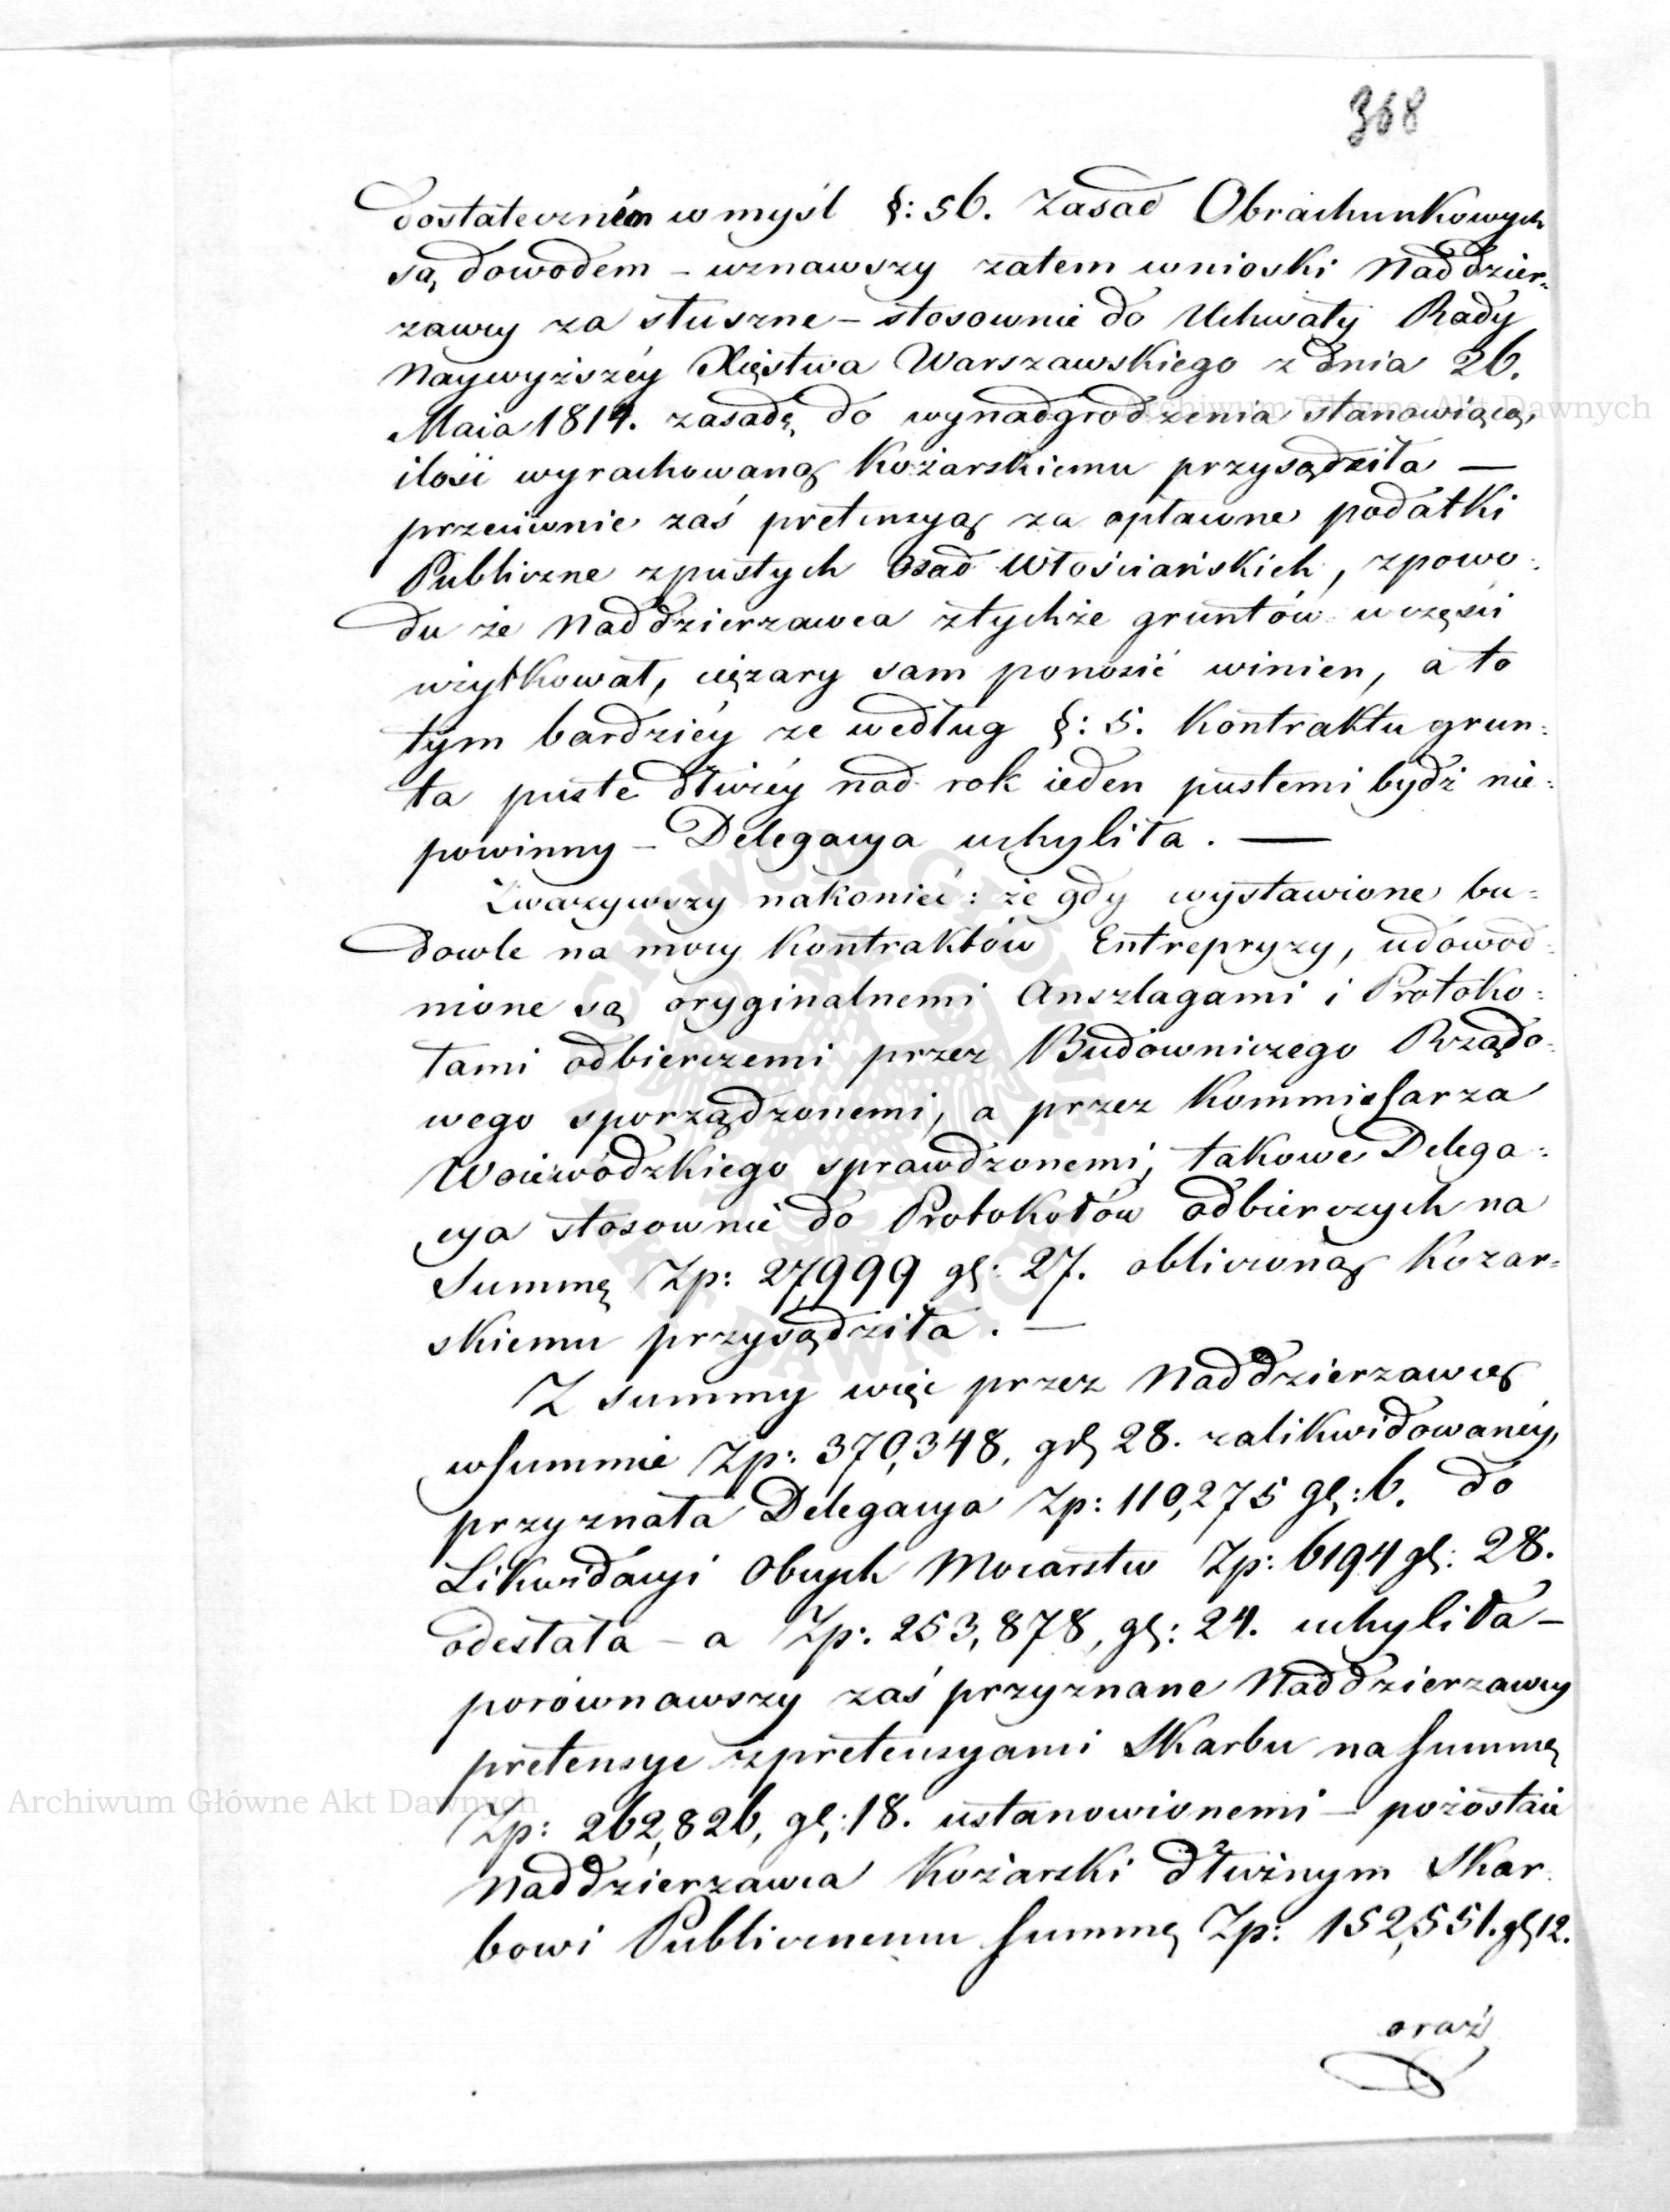 368
dostateczném w myśl §: 56. Zasad Obrachunkowych
są, dowodem – uznawszy zatem wnioski Naddzier-
zawcy za słuszne – stosownie do Uchwały Rady
Naywyższéy Xięstwa Warszawskiego z dnia 26.
Maia 1814. zasadę do wynadgrodzenia stanowiącą,
ilość wyrachowaną Kożarskiemu przysądziła —
przeciwnie zaś pretensyą za opłacone podatki
Publiczne zpustych Osad Włościańskich, zpowo:
du że Naddzierzawca ztychże gruntów w części
użytkował, ciężary sam ponosić winien, a to
tym bardziéy ze według §: 5. Kontraktu grun:
ta puste dłużéy nad rok ieden pustemi bydź nie:
powinny – Delegacya uchyliła. —
Zważywszy nakoniec: że gdy wystawione bu:
dowle na mocy Kontraktów Entrepryzy, udowod:
nione są oryginalnemi Anszlagami i Protoko:
łami odbierczemi przez Budowniczego Rządo:
wego sporządzonemi, a przez Kommissarza
Woiewódzkiego sprawdzonemi, takowe Delega:
cya stosownie do Protokołów odbierczych na
Summę Zp: 27,999 gł: 27. obliczoną Kozar-
skiemu przysądziła. —
Z summy więc przez Naddzierzawcę
wsummie Zp: 370,348, gł 28. zalikwidowanéy,
przyznała Delegacya Zp: 110,275 gł: 6. do
Likwidacyi Obcych Mocarstw Zp: 6194 gł: 28.
odesłała – a Zp: 253,878, gł: 24. uchyliła –
porównawszy zaś przyznane Naddzierzawcy
pretensye zpretensyami Skarbu na summę
Zp: 262,826, gł: 18. ustanowionemi – pozostaie
Naddzierzawca Kożarski dłużnym Skar-
bowi Publicznemu summę Zp: 152,551. gł 12.
oraz
Archiwum Główne Akt Dawnych
Archiwum Główne Akt Dawnych
ARCHIWUM GŁÓWNE AKT DAWNYCH